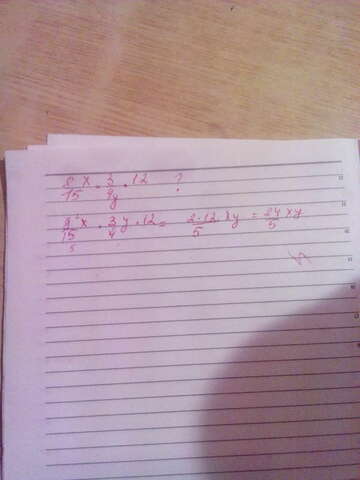 8/15 x · 3/4y · 12 ?
8/15 x · 3/4 y · 12 = 2·12/5 xy = 24/5 xy